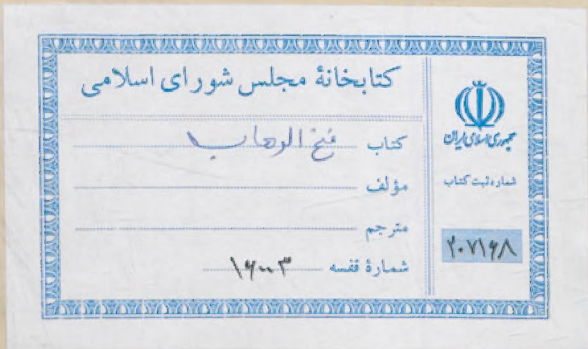 کتابخانهٔ مجلس شورای اسلامی
کتاب فتح الوهاب
مؤلف
مترجم
شمارهٔ قفسه ۱۶۰۰۳
جمهوری اسلامی ایران
شماره ثبت کتاب
۲۰۷۱۶۸